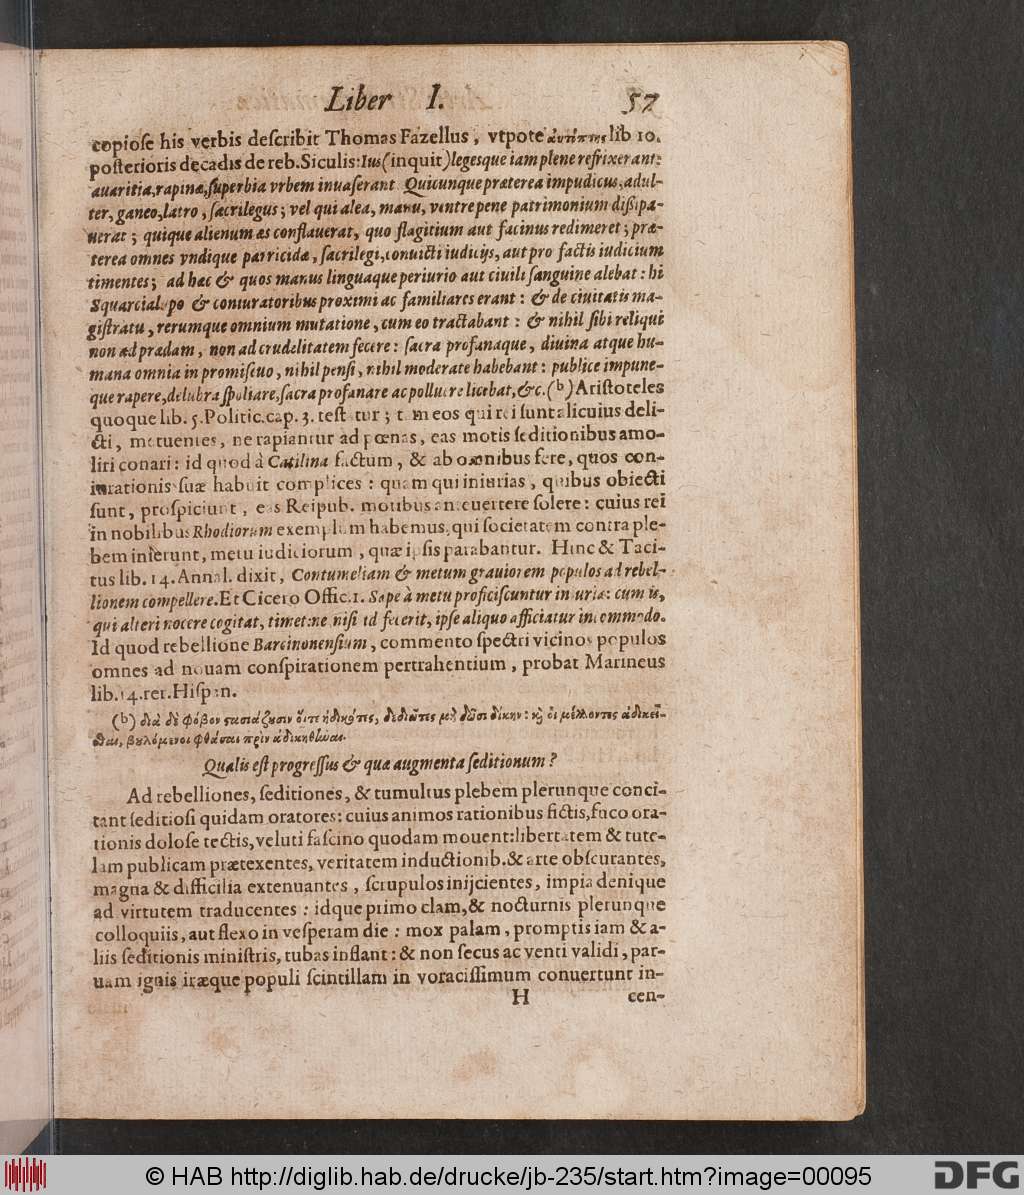 Liber I. 57
copiose his verbis describit Thomas Fazellus, vtpote αὐτόπτης lib 10.
posterioris decadis de reb. Siculis: Ius (inquit) legesque iam plene refrixerant:
auaritia, rapinæ, superbia vrbem inuaserant. Quicunque præterea impudicus, adul-
ter, ganeo, latro, sacrilegus; vel qui alea, manu, ventre pene patrimonium dißipa-
uerat; quique alienum æs conflauerat, quo flagitium aut facinus redimeret; præ-
terea omnes vndique parricidæ, sacrilegi, conuicti iudicijs, aut pro factis iudicium
timentes; ad hæc & quos manus linguaque periurio aut ciuili sanguine alebat: hi
Squarcialupo & coniuratoribus proximi ac familiares erant: & de ciuitatis ma-
gistratu, rerumque omnium mutatione, cum eo tractabant: & nihil sibi reliqui
non ad prædam, non ad crudelitatem fecere: sacra profanaque, diuina atque hu-
mana omnia in promiscuo, nihil pensi, nihil moderate habebant: publice impune-
que rapere, delubra spoliare, sacra profanare ac polluere licebat, &c. (b) Aristoteles
quoque lib. 5. Politic. cap. 3. testatur; tum eos qui rei sunt alicuius deli-
cti, metuentes, ne rapiantur ad pœnas, eas motis seditionibus amo-
liri conari: id quod à Catilina factum, & ab omnibus fere, quos con-
iurationis suæ habuit complices: quam qui iniurias, quibus obiecti
sunt, prospiciunt, eas Reipub. motibus anteuertere solere: cuius rei
in nobilibus Rhodiorum exemplum habemus, qui societatem contra ple-
bem inierunt, metu iudiciorum, quæ ipsis parabantur. Hinc & Taci-
tus lib. 14. Annal. dixit, Contumeliam & metum grauiorem populos ad rebel-
lionem compellere. Et Cicero Offic. 1. Sæpe à metu proficiscuntur iniuriæ: cum is,
qui alteri nocere cogitat, timet: ne nisi id fecerit, ipse aliquo afficiatur incommodo.
Id quod rebellione Barcinonensium, commento spectri vicinos populos
omnes ad nouam conspirationem pertrahentium, probat Marineus
lib. 14. rer. Hispan.
(b) διὰ δὲ φόβον ςασιάζουσιν οἵ τε ἠδικηκότες, δεδιότες μὴ δῶσι δίκην: καὶ οἱ μέλλοντες ἀδικεῖ-
σθαι, βουλόμενοι φθάσαι πρὶν ἀδικηθῆναι.
Qualis est progressus & quæ augmenta seditionum?
Ad rebelliones, seditiones, & tumultus plebem plerunque conci-
tant seditiosi quidam oratores: cuius animos rationibus fictis, fuco ora-
tionis dolose tectis, veluti fascino quodam mouent: libertatem & tute-
lam publicam prætexentes, veritatem inductionib. & arte obscurantes,
magna & difficilia extenuantes, scrupulos inijcientes, impia denique
ad virtutem traducentes: idque primo clam, & nocturnis plerunque
colloquiis, aut flexo in vesperam die: mox palam, promptis iam & a-
liis seditionis ministris, tubas inflant: & non secus ac venti validi, par-
uam ignis iræque populi scintillam in voracissimum conuertunt in-
H cen-
© HAB http://diglib.hab.de/drucke/jb-235/start.htm?image=00095 DFG